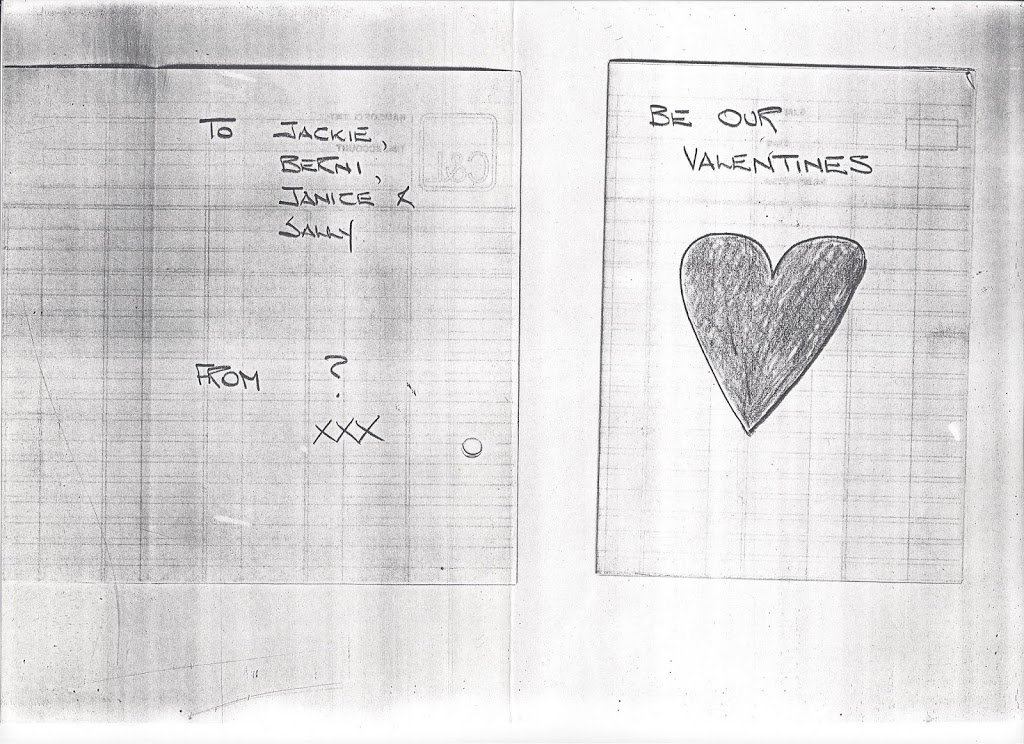 To JACKIE,
BERNI,
JANICE &
SALLY
FROM ?
XXX
BE OUR
VALENTINES